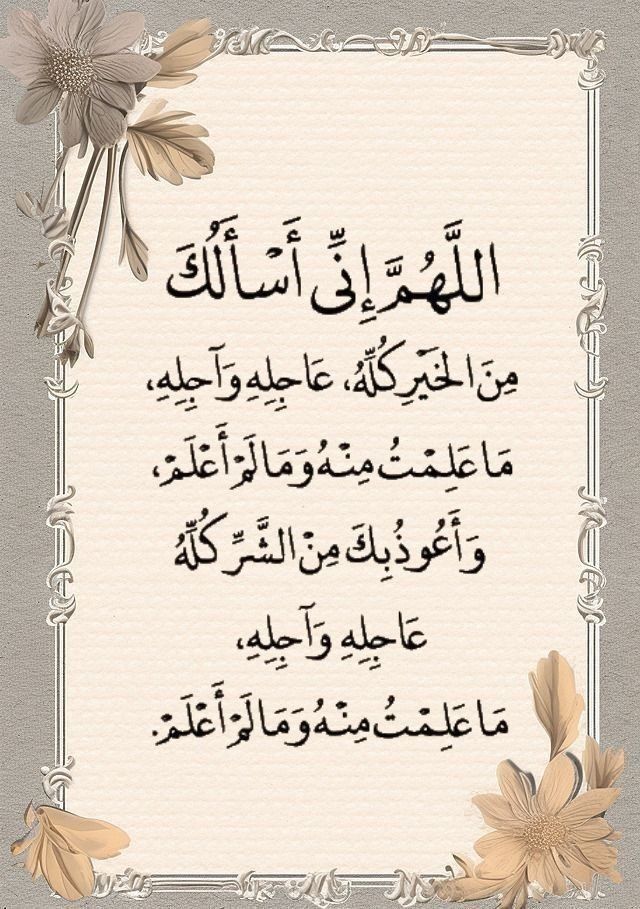 اللَّهُمَّ إِنِّي أَسْأَلُكَ
مِنَ الْخَيْرِ كُلِّهُ، عَاجِلِهِ وَآجِلِهِ،
مَا عَلِمْتُ مِنْهُ وَمَا لَمْ أَعْلَمْ،
وَأَعُوذُ بِكَ مِنَ الشَّرِّ كُلِّهُ
عَاجِلِهِ وَآجِلِهِ،
مَا عَلِمْتُ مِنْهُ وَمَا لَمْ أَعْلَمْ.